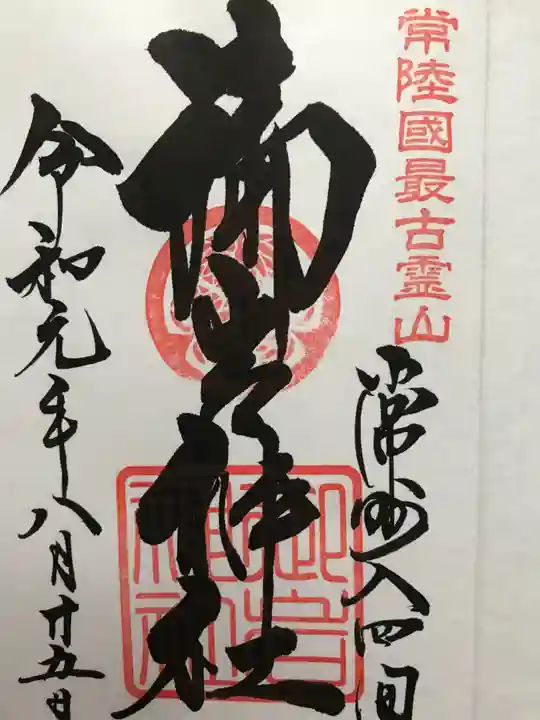 常陸國最古霊山
常州入四間
御岩神社
御岩
神社
令和元年八月十五日